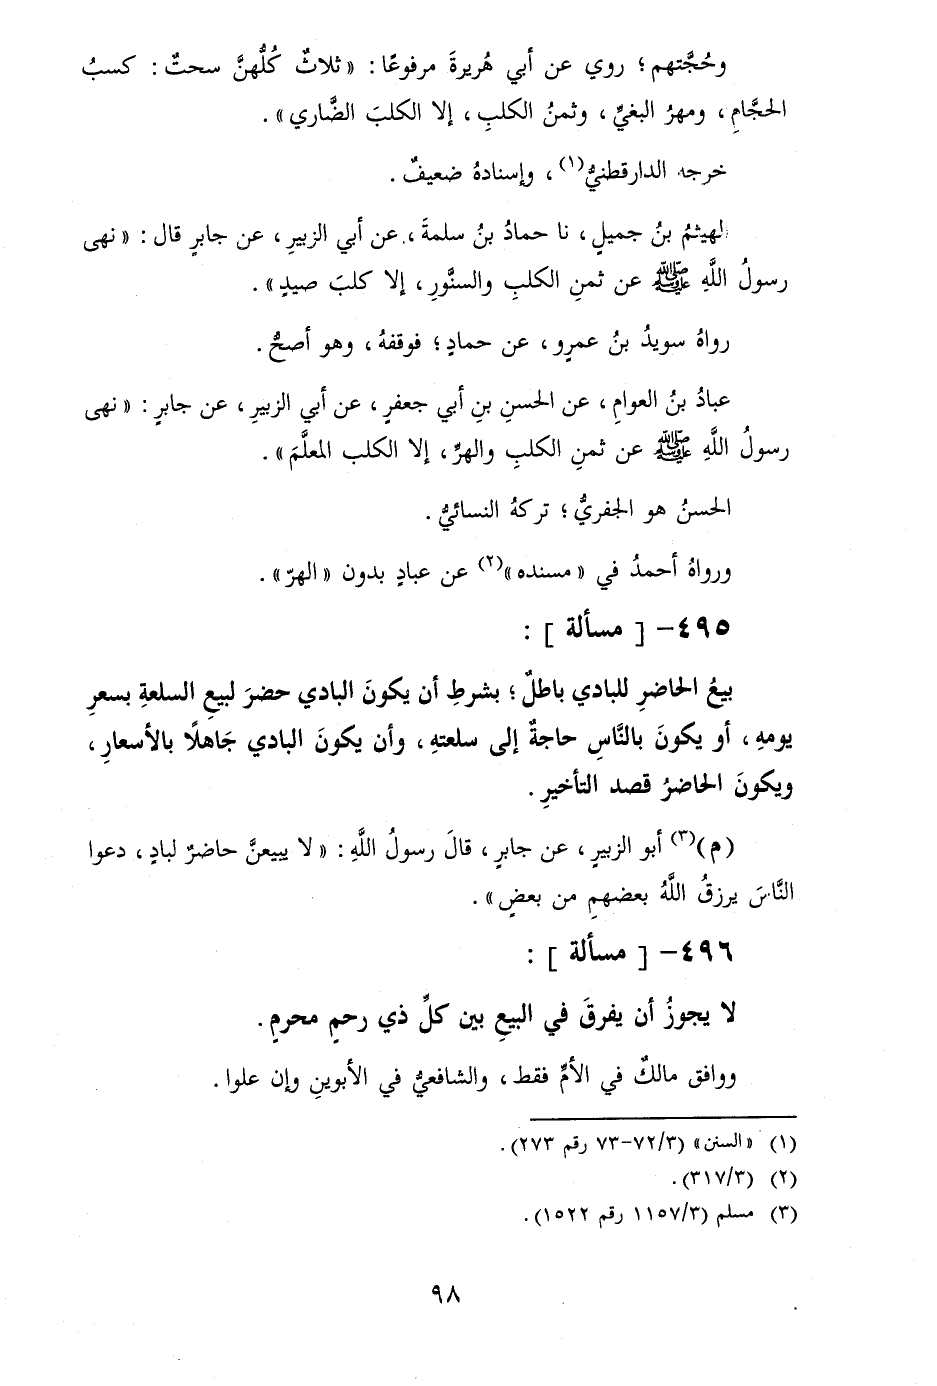 وحُجَّتهم؛ روي عن أبي هُريرةَ مرفوعًا: «ثلاثٌ كُلُّهنَّ سحتٌ: كسبُ
الحجَّامِ، ومهرُ البغيِّ، وثمنُ الكلبِ، إلا الكلبَ الضَّاري».
خرجه الدارقطنيُّ(١)، وإسنادهُ ضعيفٌ.
الهيثمُ بنُ جميلٍ، نا حمادُ بنُ سلمةَ، عن أبي الزبيرِ، عن جابرٍ قال: «نهى
رسولُ اللَّهِ ﷺ عن ثمنِ الكلبِ والسنَّورِ، إلا كلبَ صيدٍ».
رواهُ سويدُ بنُ عمرٍو، عن حمادٍ؛ فوقفهُ، وهو أصحُّ.
عبادُ بنُ العوامِ، عن الحسنِ بنِ أبي جعفرٍ، عن أبي الزبيرِ، عن جابرٍ: «نهى
رسولُ اللَّهِ ﷺ عن ثمنِ الكلبِ والهرِّ، إلا الكلب المعلَّمَ».
الحسنُ هو الجفريُّ؛ تركهُ النسائيُّ.
ورواهُ أحمدُ في «مسنده»(٢) عن عبادٍ بدون «الهرّ».
٤٩٥- [مسألة]:
بيعُ الحاضرِ للبادي باطلٌ؛ بشرطِ أن يكونَ البادي حضرَ لبيعِ السلعةِ بسعرِ
يومهِ، أو يكونَ بالنَّاسِ حاجةٌ إلى سلعتهِ، وأن يكونَ البادي جَاهلًا بالأسعارِ،
ويكونَ الحاضرُ قصد التأخيرِ.
(م)(٣) أبو الزبيرِ، عن جابرٍ، قالَ رسولُ اللَّهِ: «لا يبيعنَّ حاضرٌ لبادٍ، دعوا
النَّاسَ يرزقُ اللَّهُ بعضهمِ من بعضٍ».
٤٩٦- [مسألة]:
لا يجوزُ أن يفرقَ في البيعِ بين كلِّ ذي رحمٍ محرمٍ.
ووافق مالكٌ في الأمِّ فقط، والشافعيُّ في الأبوينِ وإن علوا.
(١) «السنن» (٣/٧٢-٧٣ رقم ٢٧٣).
(٢) (٣/٣١٧).
(٣) مسلم (٣/١١٥٧ رقم ١٥٢٢).
٩٨